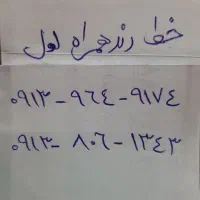 خط رند همراه اول
۰۹۱۳-۹۶۴-۹۱۷۴
۰۹۱۳-۸۰۶-۱۳۴۳